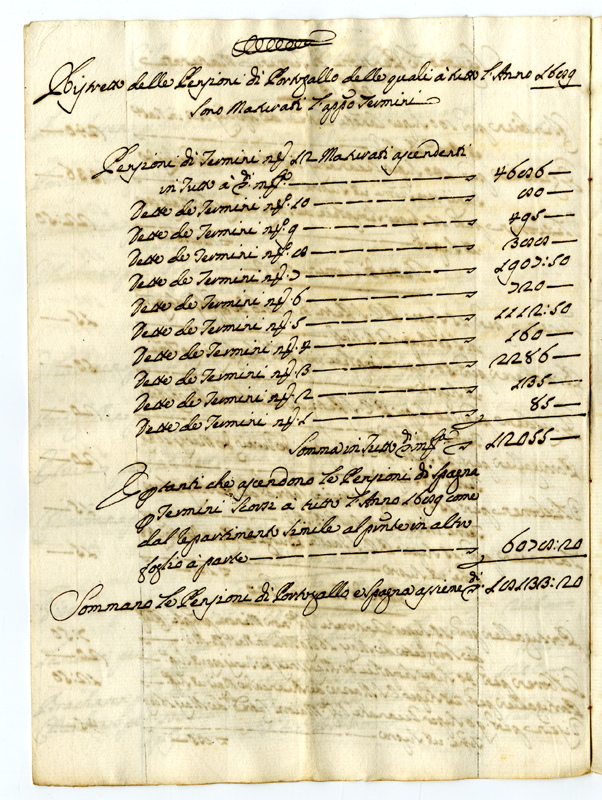 Ristretto delle Pensioni di Portogallo delle quali à tutto l'Anno 1689
sono Maturati l'appo Termini
Pensioni di Termini nº 12 Maturati ascendenti
in tutto à di mta 4686
Dette de Termini nº 10 80
Dette de Termini nº 9 495
Dette de Termini nº 8 388
Dette de Termini nº 7 1907:50
Dette de Termini nº 6 720
Dette de Termini nº 5 1112:50
Dette de Termini nº 4 160
Dette de Termini nº 3 2286
Dette de Termini nº 2 135
Dette de Termini nº 1 85
Somma in Tutto di mta 12055
che ascendono le Pensioni di Spagna
Termini scorsi à tutto l'Anno 1689 come
dal repartimento simile al pnte in altro
foglio à parte 6078:20
Sommano le Pensioni di Portogallo e Spagna assieme di 18133:20